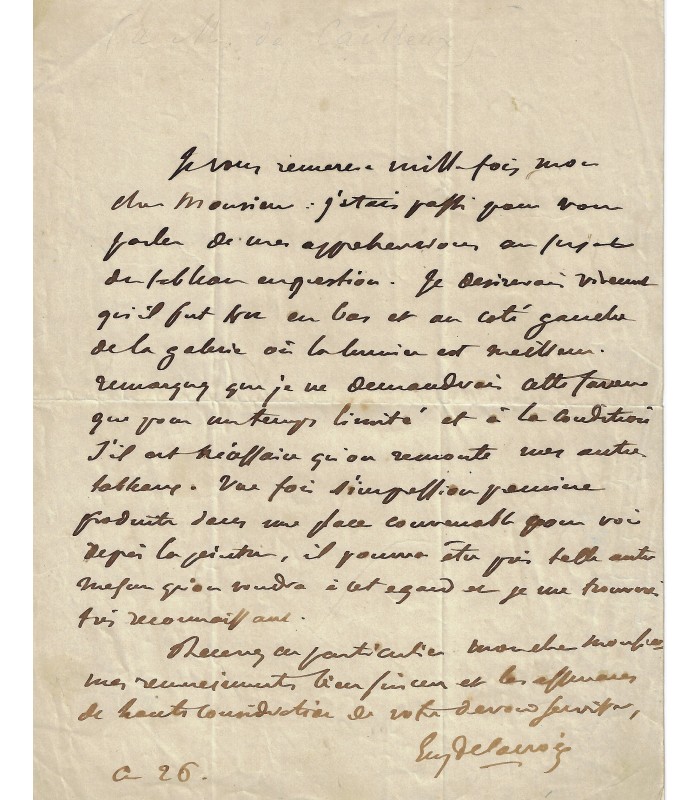 (à M. de Cailleux)
Je vous remercie mille fois mon
cher Monsieur : j'étais passé pour vous
parler de mes apprehensions au sujet
du tableau en question. Je desirerais vivement
qu'il fut vu en bas et au coté gauche
de la galerie où la lumière est meilleure.
remarquez que je ne demanderais cette faveur
que pour un temps limité et à la condition
s'il est nécessaire qu'on remonte mes autres
tableaux. Une fois l'impression première
produite dans une place convenable pour voir
depuis la peinture, il pourra être pris telle autre
mesure qu'on voudra à cet egard et je me trouverai
très reconnaissant.
Recevez en particulier mon cher Monsieur
mes remerciements bien sincères et les assurances
de haute considération de votre devoué serviteur,
Eug Delacroix
Ce 26.